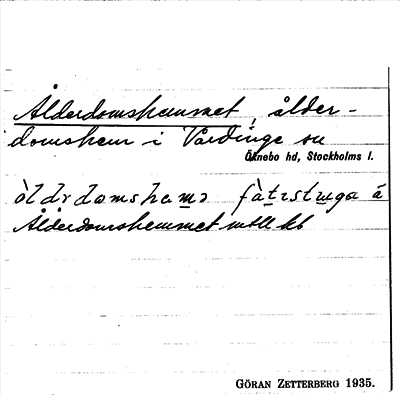 Ålderdomshemmet, ålder-
domshem i Vårdinge sn
Öknebo hd, Stockholms l.
ò̀ldrdomshemə fàtɩstuga å
Ålderdomshemmet
GÖRAN ZETTERBERG 1935.